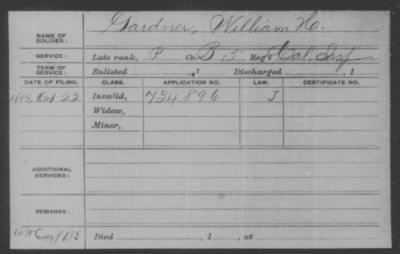 NAME OF SOLDIER: Gardner, William H.
SERVICE: Late rank, P Co. B 5 Reg't Cal. Inf
TERM OF SERVICE: Enlisted , 1 Discharged , 1
DATE OF FILING. CLASS. APPLICATION NO. LAW. CERTIFICATE NO.
22 Invalid, 734.896 J
Widow,
Minor,
ADDITIONAL SERVICES:
REMARKS:
Died , 1 , at